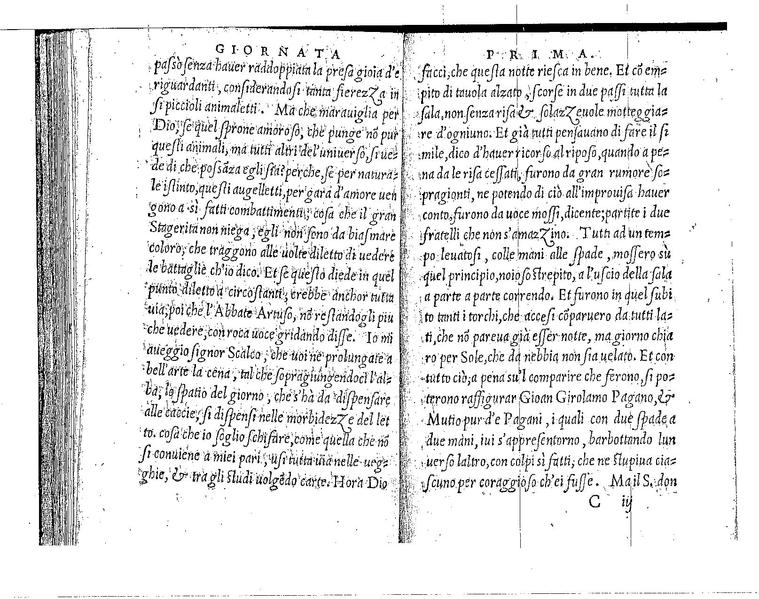 GIORNATA
passò senza hauer raddoppiata la presa gioia d'e
riguardanti, considerandosi tanta fierezza in
si piccioli animaletti. Ma che marauiglia per
Dio, se quel sprone amoroso, che punge nõ pur
questi animali, ma tutti altri del'uniuerso, si ue=
de di che possãza egli sia? perche, se per natura=
le istinto, questi augelletti, per gara d'amore uen
gono a sì fatti combattimenti; cosa che il gran
Stagerita non niega; egli non sono da biasmare
coloro, che traggono alle uolte diletto di uedere
le battaglie ch'io dico. Et se questo diede in quel
punto diletto a circostanti, crebbe anchor tutta
uia; poi che l'Abbate Artuso, nõ restandogli piu
che uedere, con roca uoce gridando disse. Io mi
aueggio signor Scalco, che uoi ne prolungate a
bell'arte la cena, tal che sopragiungendoci l'al=
ba, lo spatio del giorno, che s'hà da dispensare
alle caccie, si dispensi nelle morbidezze del let
to. cosa che io soglio schifare, come quella che nõ
si conuiene a miei pari, usi tutta uia nelle ueg=
ghie, & tra gli studi uolgẽdo carte. Hora Dio
PRIMA.
facci, che questa notte riesca in bene. Et cõ em=
pito di tauola alzato, scorse in due passi tutta la
sala, non senza risa & solazzeuole motteggia=
re d'ogniuno. Et già tutti pensauano di fare il si
mile, dico d'hauer ricorso al riposo, quando a pe=
na da le risa cessati, furono da gran rumore so=
pragionti, ne potendo di ciò all'improuisa hauer
conto, furono da uoce mossi, dicente; partite i due
fratelli che non s'amazzino. Tutti ad un tem=
po leuatosi, colle mani alle spade, mossero sù
quel principio, noioso strepito, a l'uscio della sala
a parte a parte correndo. Et furono in quel subi
to tanti i torchi, che accesi cõparuero da tutti la=
ti, che nõ pareua già esser notte, ma giorno chia
ro per Sole, che da nebbia non sia uelato. Et con
tutto ciò, a pena su'l comparire che ferono, si po=
terono raffigurar Gioan Girolamo Pagano, &
Mutio pur d'e Pagani, i quali con due spade a
due mani, iui s'appresentorno, barbottando lun
uerso laltro, con colpi sì fatti, che ne stupiua cia=
scuno per coraggioso ch'ei fusse. Ma il S. don
C iij